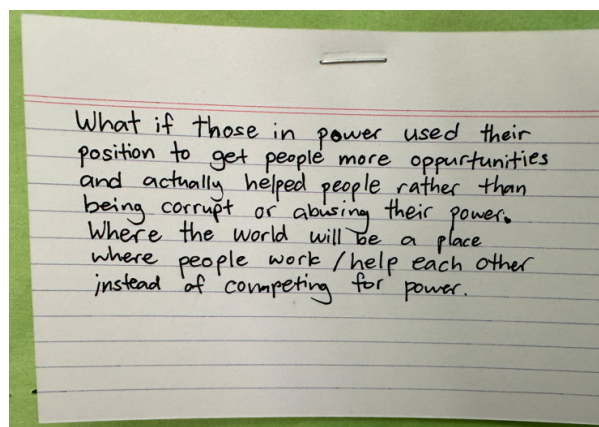 What if those in power used their
position to get people more oppurtunities
and actually helped people rather than
being corrupt or abusing their power.
Where the world will be a place
where people work / help each other
instead of competing for power.